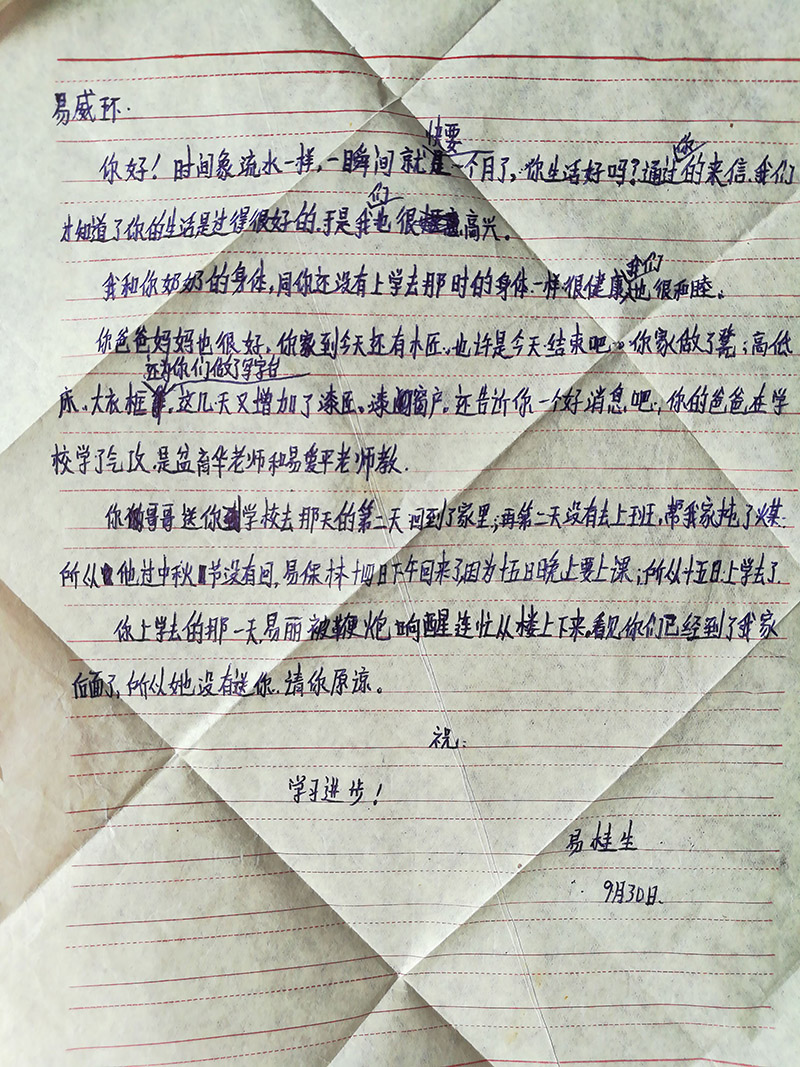 易威环.
你好！时间象流水一样，一瞬间就快要一个月了，你生活好吗？通过你的来信，我们
才知道了你的生活是过得很好的，于是我们也很高兴。
我和你奶奶的身体，同你还没有上学去那时的身体一样很健康，我们也很和睦。
你爸爸妈妈也很好，你家到今天还有木匠，也许是今天结束吧。你家做了凳；高低
床、大衣框，还为你们做了写字台。这几天又增加了漆匠。漆窗户。还告诉你一个好消息吧，你的爸爸在学
校学了气功，是盆育华老师和易爱平老师教.
你哥哥送你学校去那天的第二天回到了家里；再第二天没有去上班，帮我家挑了煤.
所以他过中秋节没有回，易保林十四日下午回来了因为十五日晚上要上课；所以十五日上学去了
你上学去的那一天，易丽被鞭炮响醒连忙从楼上下来，看见你们已经到了我家
后面了，所以她没有送你，请你原谅。
祝：
学习进步！
易桂生
9月30日.